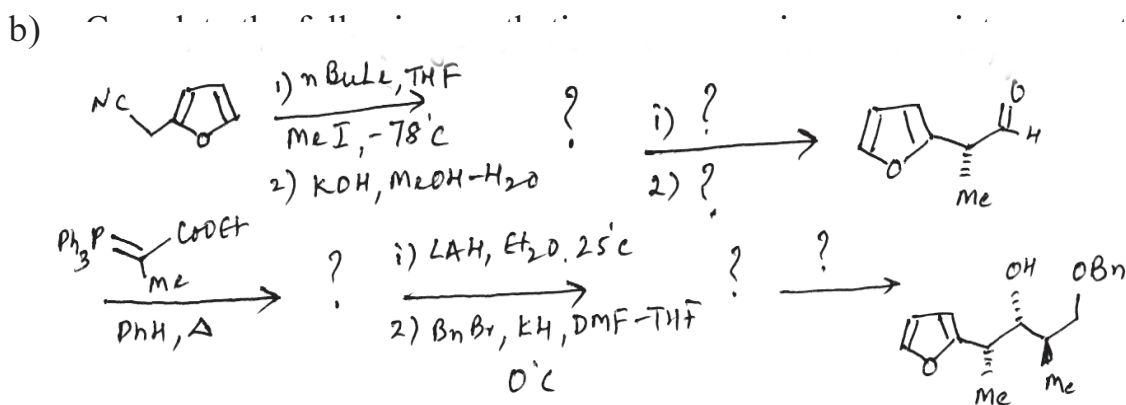 b)
NC O
1) n BuLi, THF
MeI, -78°C
2) KOH, MeOH-H2O
?
1) ?
2) ?
O O H
Me
Ph3P COOEt
Me
PhH, Δ
?
i) LAH, Et2O, 25°C
2) BnBr, KH, DMF-THF
0°C
?
?
OH OBn
O Me Me